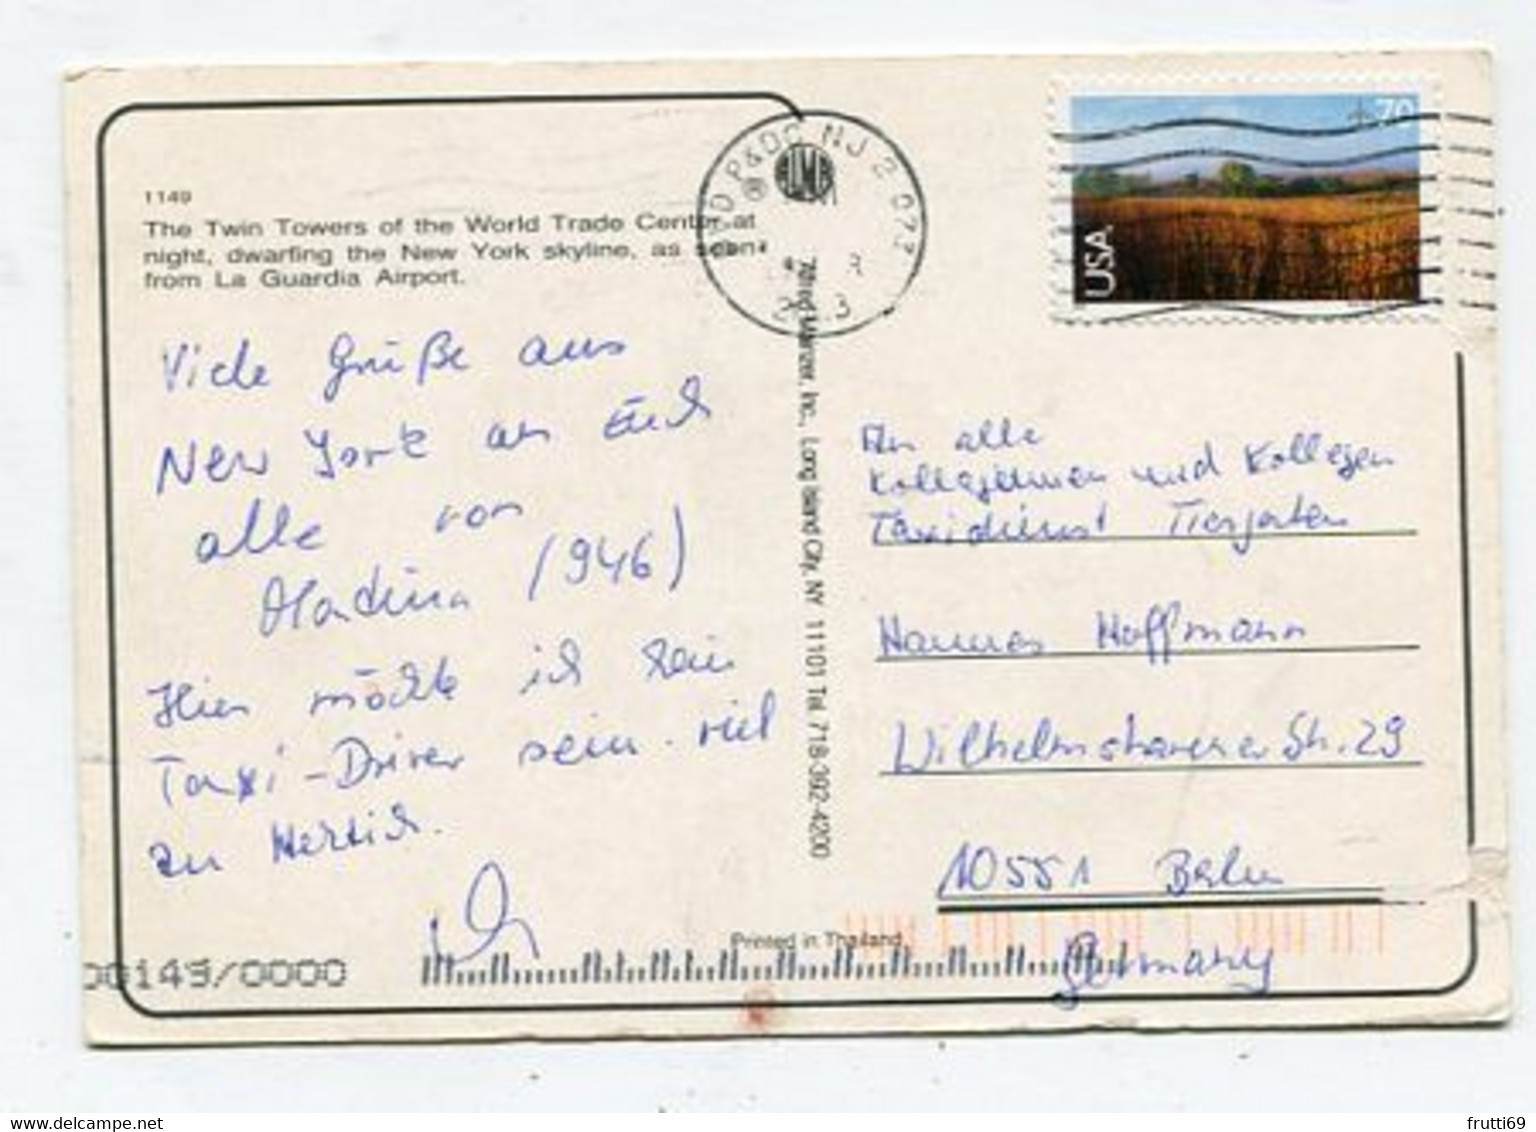 1149
The Twin Towers of the World Trade Center at
night, dwarfing the New York skyline, as seen
from La Guardia Airport.
Viele Grüße aus
New York an Euch
alle von
(946)
Hier möchte ich kein
Taxi-Driver sein. viel
zu Hektisch.
P&DC NJ 2 077
70
USA
Alfred Mainzer, Inc., Long Island City, NY 11101 Tel. 718-392-4200
An alle
Kolleginnen und Kollegen
Taxidienst Tiergarten
Hannes Hoffmann
Wilhelmshavener Str. 29
10551 Berlin
Germany
Printed in Thailand
00149/0000
www.delcampe.net
frutti69